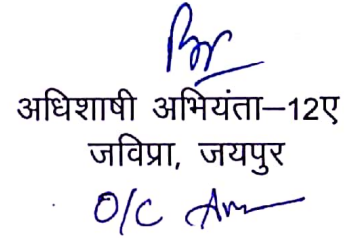 अधिशाषी अभियंता–12ए
जविप्रा, जयपुर
O/C